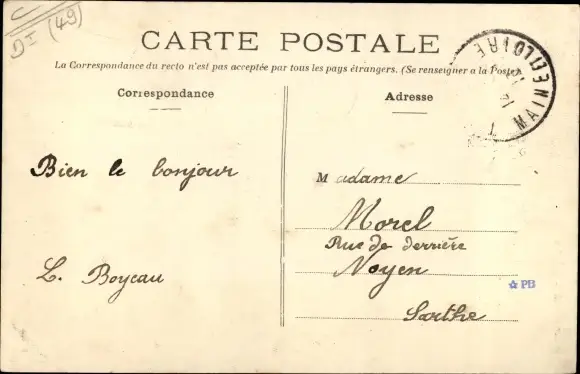 DI (49)
CARTE POSTALE
La Correspondance du recto n'est pas acceptée par tous les pays étrangers. (Se renseigner a la Poste)
Correspondance
Adresse
MAINE-ET-LOIRE
Bien le bonjour
L. Boyeau
Madame
Morel
Rue de derrière
Noyen
Sarthe
PB